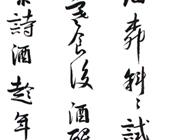 柳斜〻試
寒食後酒醒
詩酒趁年